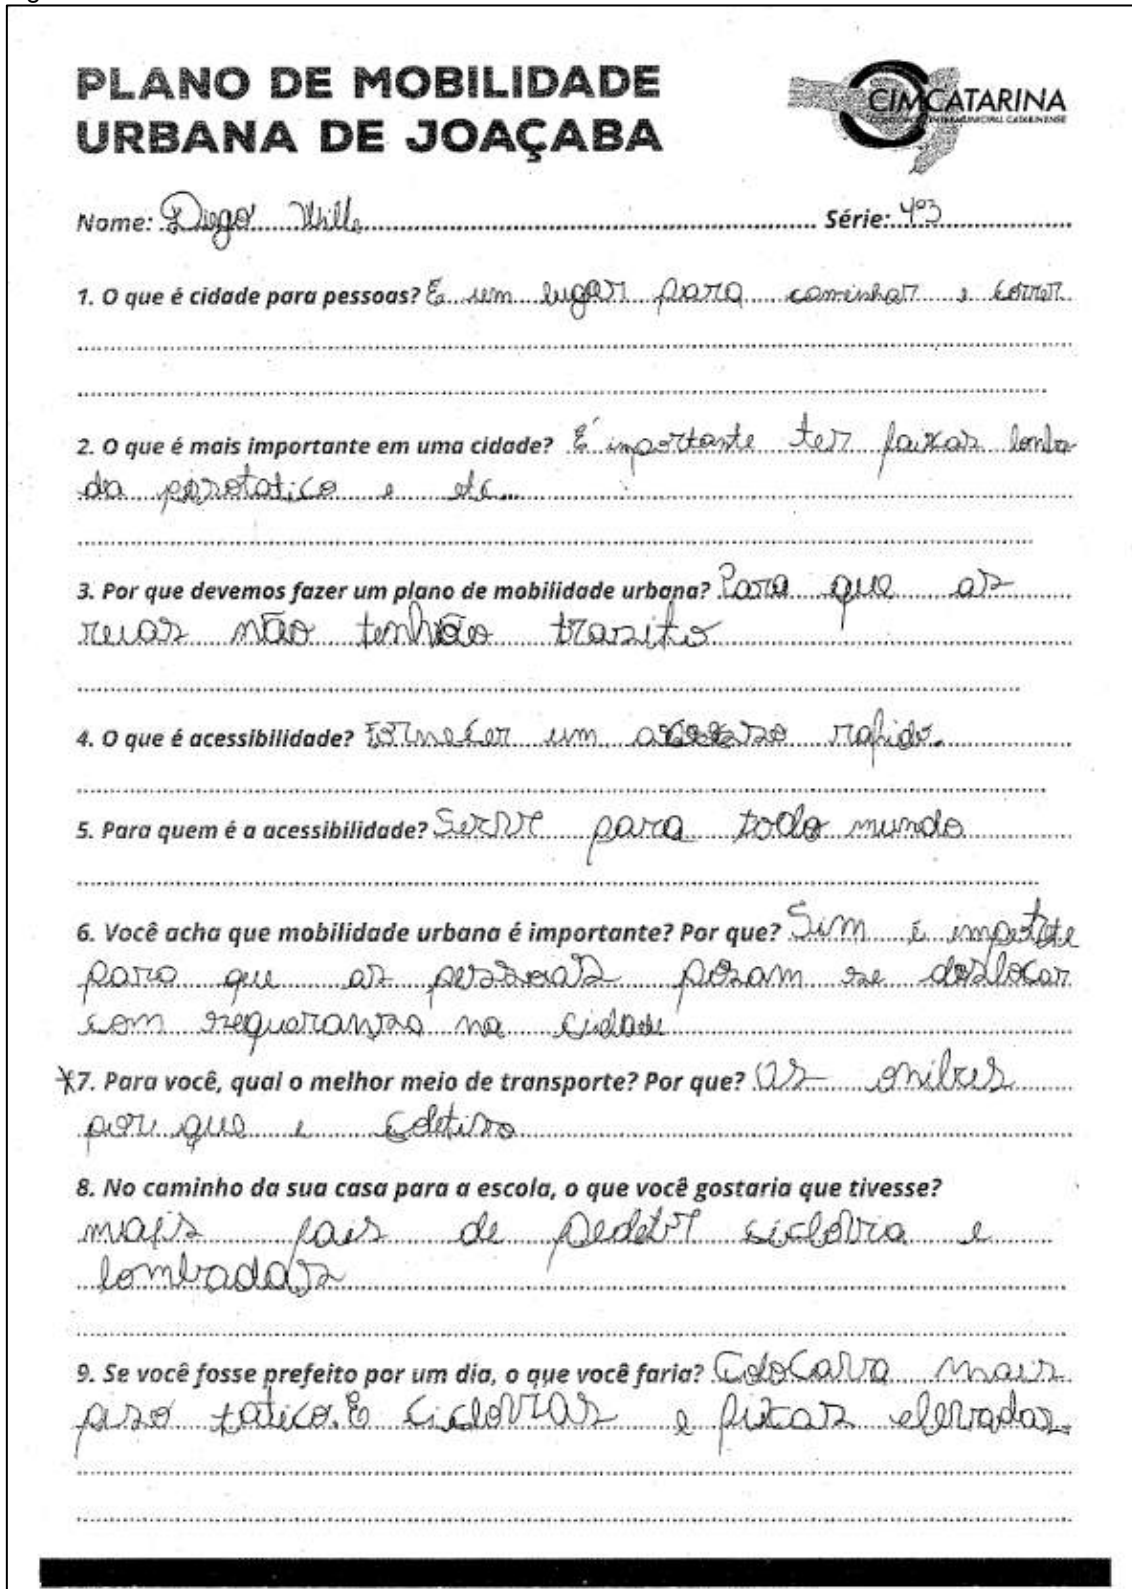 PLANO DE MOBILIDADE
URBANA DE JOAÇABA
CIMCATARINA
CONSÓRCIO INTERMUNICIPAL CATARINENSE
Nome: Diego Wille Série: 4º3
1. O que é cidade para pessoas? É um lugar para caminhar e correr
2. O que é mais importante em uma cidade? É importante ter faixas lomba
da pisotatico e etc...
3. Por que devemos fazer um plano de mobilidade urbana? Para que as
ruas não tenhão tranzito
4. O que é acessibilidade? Fornecer um acesso rapido.
5. Para quem é a acessibilidade? Serve para todo mundo
6. Você acha que mobilidade urbana é importante? Por que? Sim é
para que as pessoas posam se deslocar
com na cidade
7. Para você, qual o melhor meio de transporte? Por que? os onibus
por que e coletivo
8. No caminho da sua casa para a escola, o que você gostaria que tivesse?
mais de siclovia e
lombadas
9. Se você fosse prefeito por um dia, o que você faria? Colocava mais
piso tatico. E ciclovias e elevadas.